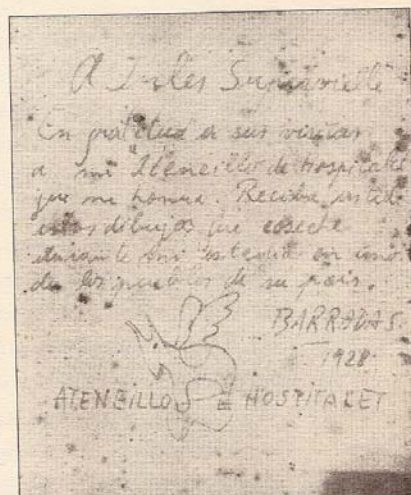 A Jules Supervielle
En gratitud a sus visitas
a mi Ateneillo de Hospitalet
que me honra. Reciba usted
estos dibujos que coseché
durante mi estada en uno
de los pueblos de su país.
BARRADAS.
1928
ATENEILLO DE HOSPITALET